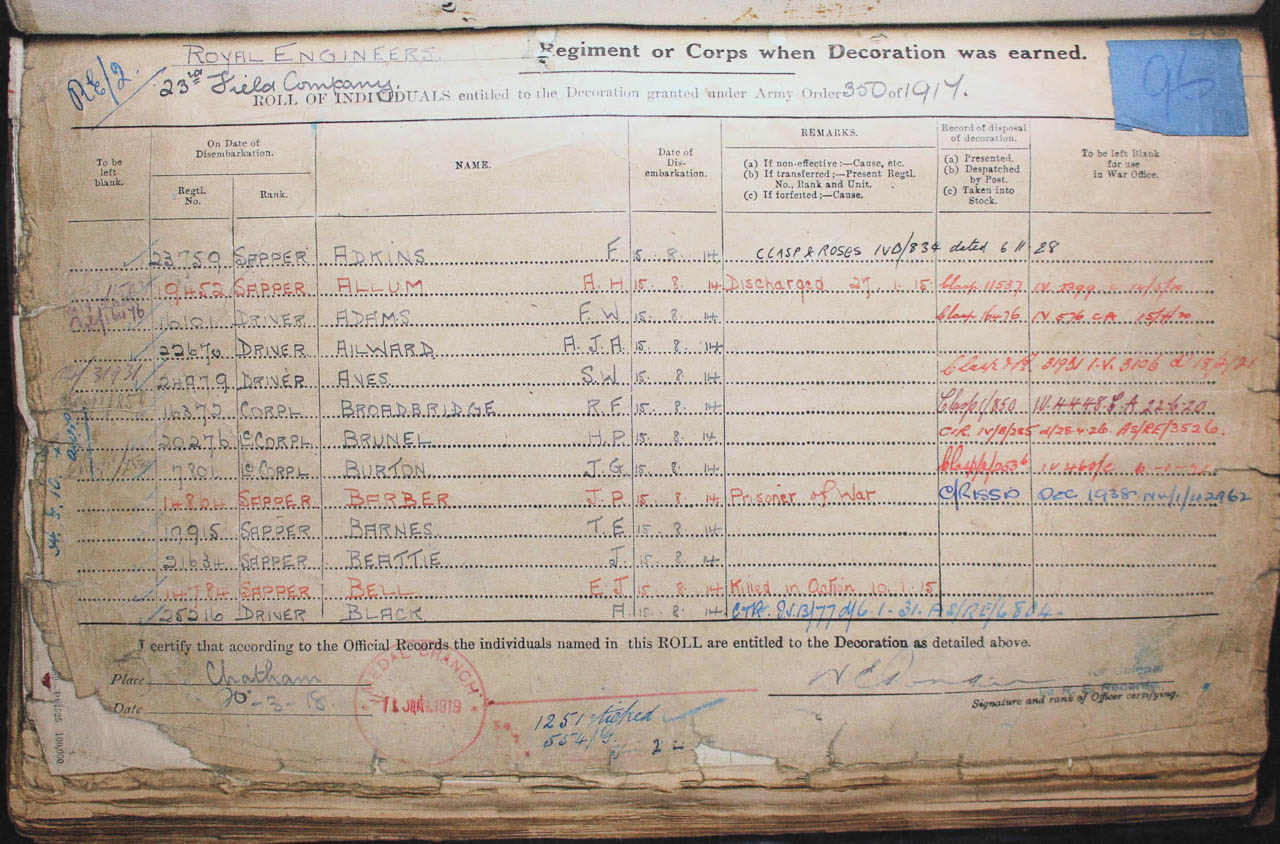 RE/2
ROYAL ENGINEERS. Regiment or Corps when Decoration was earned.
95
23rd Field Company.
ROLL OF INDIVIDUALS entitled to the Decoration granted under Army Order 350 of 1917.
To be left blank.
On Date of Disembarkation.
Regtl. No.
Rank.
NAME.
Date of Dis-embarkation.
REMARKS.
(a) If non-effective:—Cause, etc.
(b) If transferred;—Present Regtl. No., Rank and Unit.
(c) If forfeited;—Cause.
Record of disposal of decoration.
(a) Presented.
(b) Despatched by Post.
(c) Taken into Stock.
To be left Blank for use in War Office.
23759 SAPPER ADKINS F. 15. 8. 14 CLASP & ROSES IVD/834 dated 6 11 28
19452 SAPPER ALLUM A. H 15. 8. 14 Discharged 27. 1. 15 Clasp 11537
16101 DRIVER ADAMS F. W 15. 8. 14 Clasp 16476 IV 576 CA 15/7/20
22670 DRIVER AILWARD A. J. A. 15. 8. 14
24979 DRIVER AVES S. W. 15. 8. 14 31931 I.V. 3106
16372 CORPL BROADBRIDGE R. F. 15. 8. 14 Clasp 1/850 IV 4448 22.6.20
20276 CORPL BRUNEL H. P. 15. 8. 14 AS/RE/3526.
7801 CORPL BURTON J. G. 15. 8. 14
14864 SAPPER BARBER J. P. 15. 8. 14 Prisoner of War DEC 1938
19915 SAPPER BARNES T. E 15. 8. 14
21634 SAPPER BEATTIE J. 15. 8. 14
14784 SAPPER BELL E. J 15. 8. 14 Killed in Action 10. 1. 15
25216 DRIVER BLACK A. 15. 8. 14 6. 1. 31. AS/RE/6804.
I certify that according to the Official Records the individuals named in this ROLL are entitled to the Decoration as detailed above.
Place Chatham
Date 20-3-18.
MEDAL BRANCH
JAN 1919
1251 ticked
Signature and rank of Officer certifying.